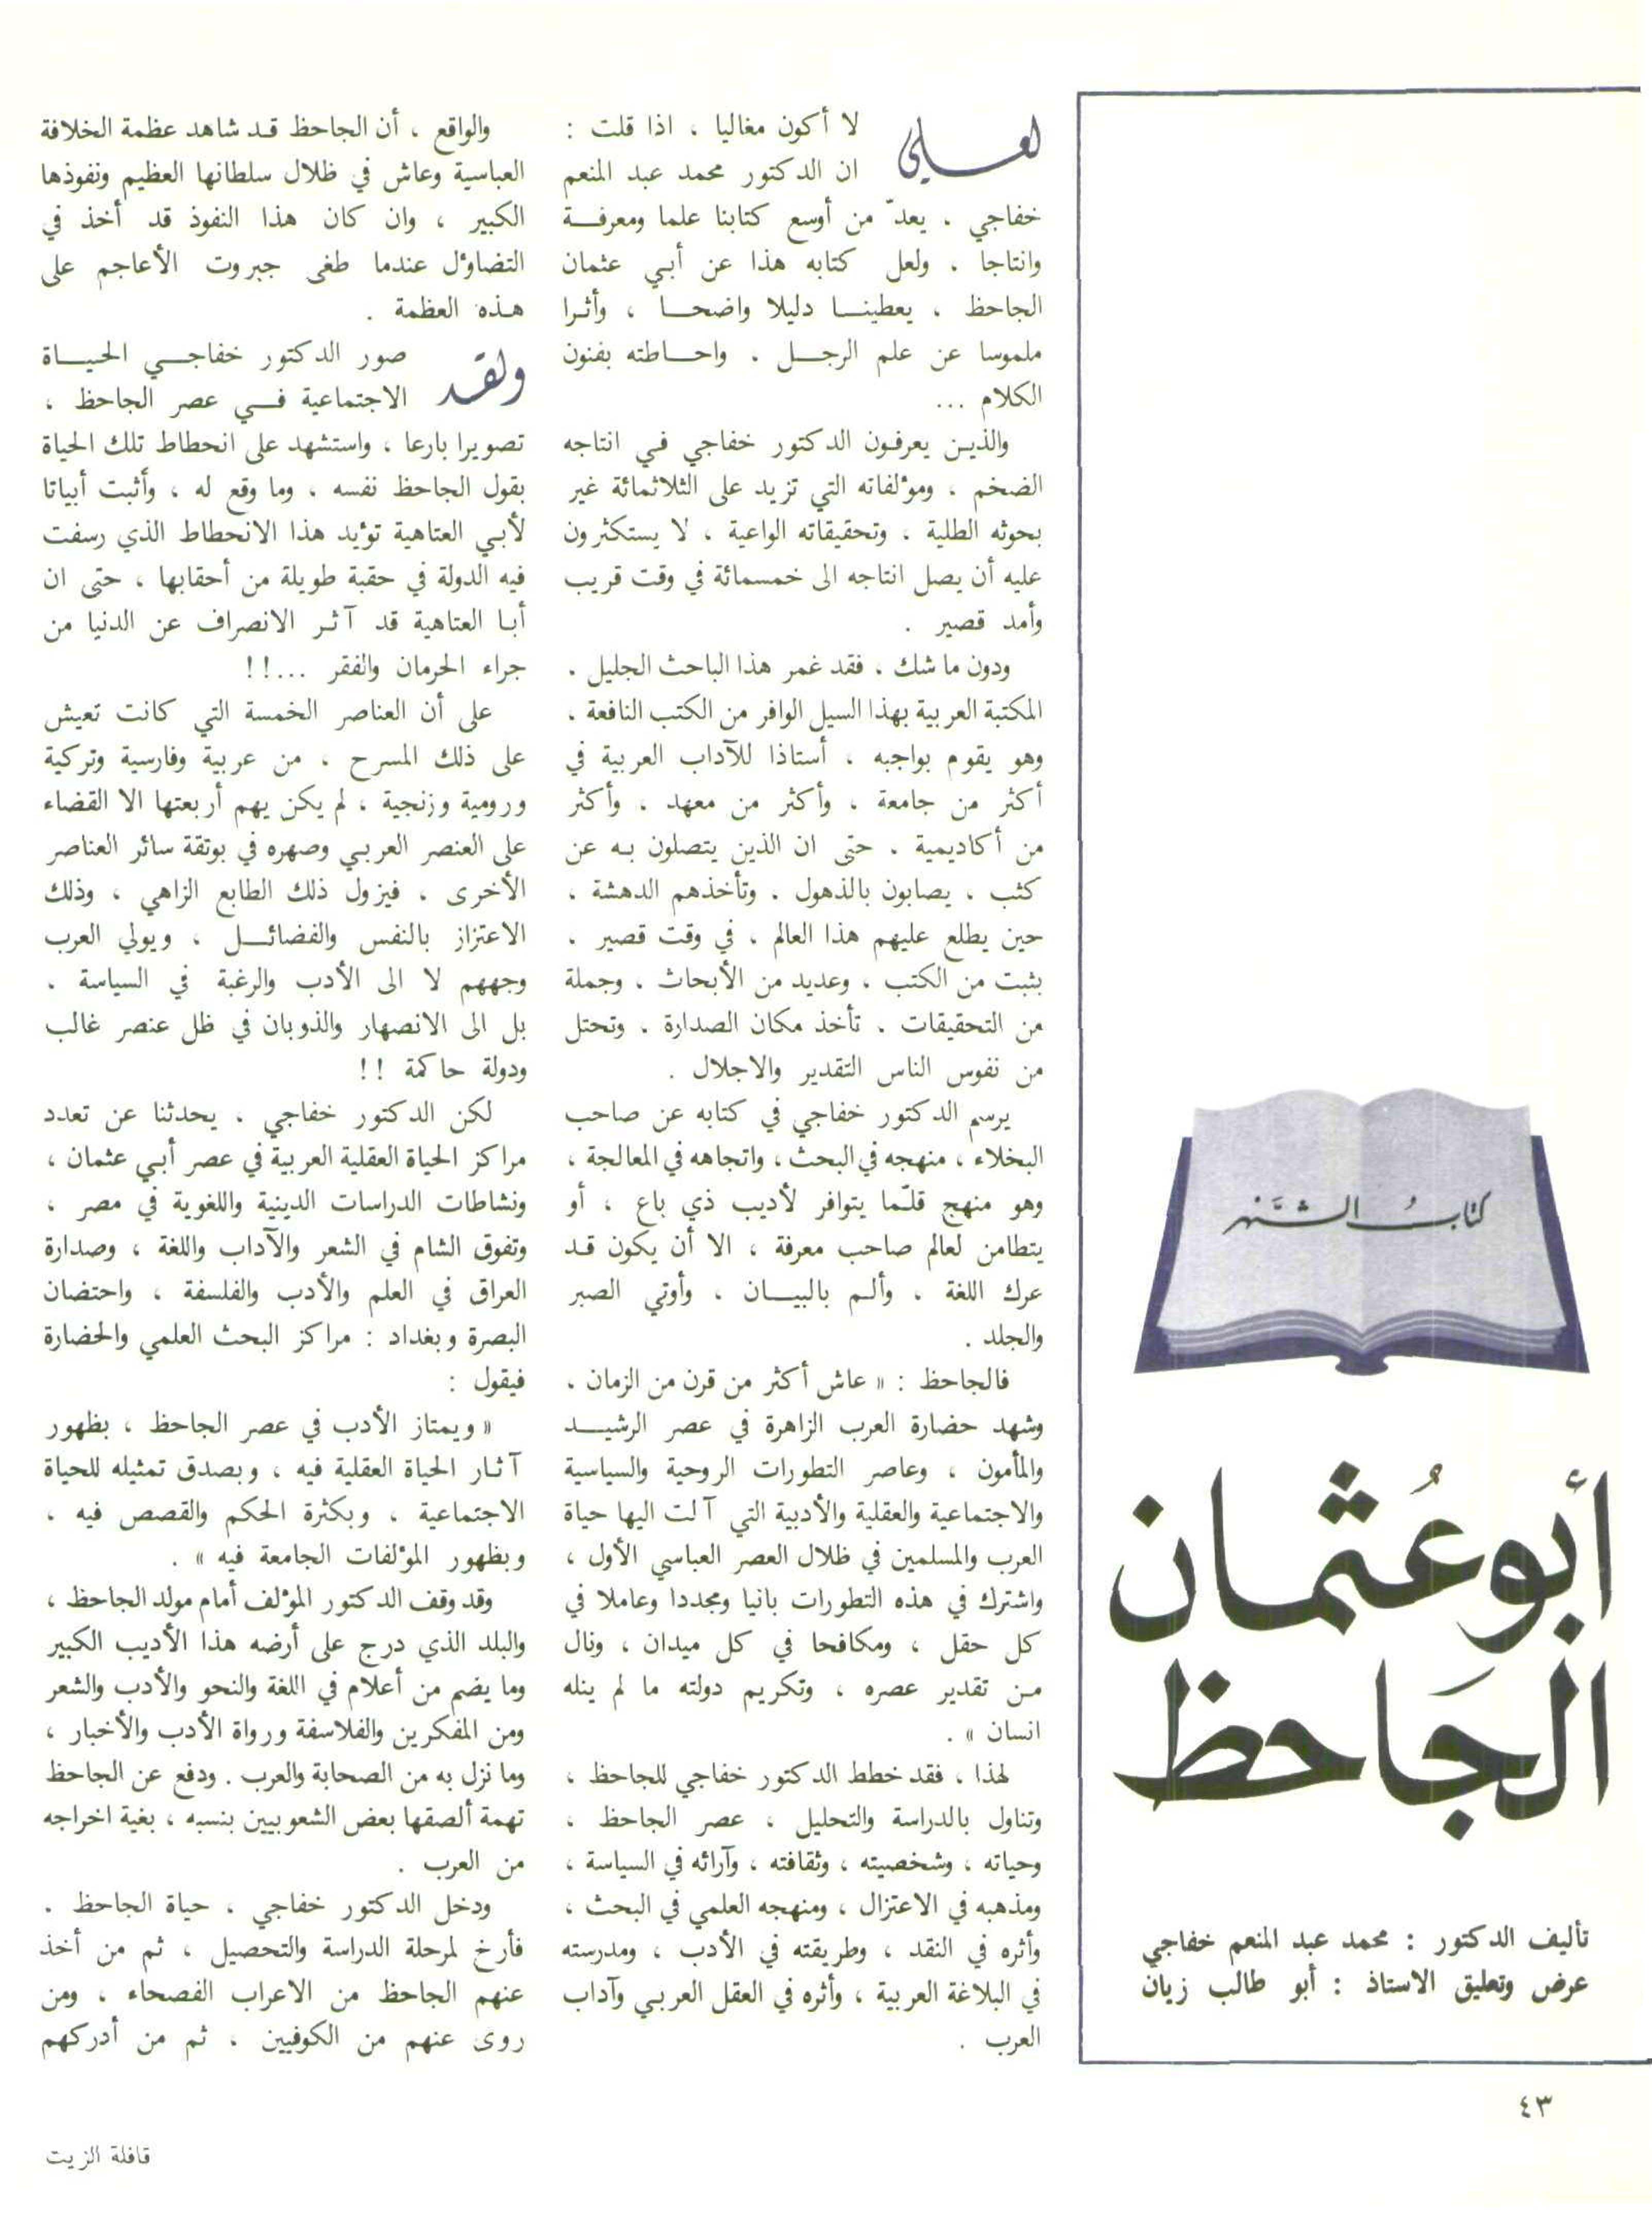 كتاب الشهر
أبو عثمان
الجاحظ
تأليف الدكتور : محمد عبد المنعم خفاجي
عرض وتعليق الاستاذ : أبو طالب زيان
لعلي لا أكون مغاليا ، اذا قلت :
ان الدكتور محمد عبد المنعم
خفاجي ، يعدّ من أوسع كتابنا علما ومعرفة
وانتاجا ، ولعل كتابه هذا عن أبي عثمان
الجاحظ ، يعطينا دليلا واضحا ، وأثرا
ملموسا عن علم الرجل ، واحاطته بفنون
الكلام ...
والذين يعرفون الدكتور خفاجي في انتاجه
الضخم ، ومؤلفاته التي تزيد على الثلاثمائة غير
بحوثه الطلية ، وتحقيقاته الواعية ، لا يستكثرون
عليه أن يصل انتاجه الى خمسمائة في وقت قريب
وأمد قصير .
ودون ما شك ، فقد غمر هذا الباحث الجليل ،
المكتبة العربية بهذا السيل الوافر من الكتب النافعة ،
وهو يقوم بواجبه ، أستاذا للآداب العربية في
أكثر من جامعة ، وأكثر من معهد ، وأكثر
من أكاديمية ، حتى ان الذين يتصلون به عن
كثب ، يصابون بالذهول ، وتأخذهم الدهشة ،
حين يطلع عليهم هذا العالم ، في وقت قصير ،
بثبت من الكتب ، وعديد من الأبحاث ، وجملة
من التحقيقات ، تأخذ مكان الصدارة ، وتحتل
من نفوس الناس التقدير والاجلال .
يرسم الدكتور خفاجي في كتابه عن صاحب
البخلاء ، منهجه في البحث ، واتجاهه في المعالجة ،
وهو منهج قلّما يتوافر لأديب ذي باع ، أو
يتطامن لعالم صاحب معرفة ، الا أن يكون قد
عرك اللغة ، وألم بالبيان ، وأوتي الصبر
والجلد .
فالجاحظ : « عاش أكثر من قرن من الزمان ،
وشهد حضارة العرب الزاهرة في عصر الرشيد
والمأمون ، وعاصر التطورات الروحية والسياسية
والاجتماعية والعقلية والأدبية التي آلت اليها حياة
العرب والمسلمين في ظلال العصر العباسي الأول ،
واشترك في هذه التطورات بانيا ومجددا وعاملا في
كل حقل ، ومكافحا في كل ميدان ، ونال
من تقدير عصره ، وتكريم دولته ما لم ينله
انسان » .
لهذا ، فقد خطط الدكتور خفاجي للجاحظ ،
وتناول بالدراسة والتحليل ، عصر الجاحظ ،
وحياته ، وشخصيته ، وثقافته ، وآرائه في السياسة ،
ومذهبه في الاعتزال ، ومنهجه العلمي في البحث ،
وأثره في النقد ، وطريقته في الأدب ، ومدرسته
في البلاغة العربية ، وأثره في العقل العربي وآداب
العرب .
والواقع ، أن الجاحظ قد شاهد عظمة الخلافة
العباسية وعاش في ظلال سلطانها العظيم ونفوذها
الكبير ، وان كان هذا النفوذ قد أخذ في
التضاؤل عندما طغى جبروت الأعاجم على
هذه العظمة .
ولقد صور الدكتور خفاجي الحياة
الاجتماعية في عصر الجاحظ ،
تصويرا بارعا ، واستشهد على انحطاط تلك الحياة
بقول الجاحظ نفسه ، وما وقع له ، وأثبت أبياتا
لأبي العتاهية تؤيد هذا الانحطاط الذي رسفت
فيه الدولة في حقبة طويلة من أحقابها ، حتى ان
أبا العتاهية قد آثر الانصراف عن الدنيا من
جراء الحرمان والفقر ...!!
على أن العناصر الخمسة التي كانت تعيش
على ذلك المسرح ، من عربية وفارسية وتركية
ورومية وزنجية ، لم يكن يهم أربعتها الا القضاء
على العنصر العربي وصهره في بوتقة سائر العناصر
الأخرى ، فيزول ذلك الطابع الزاهي ، وذلك
الاعتزاز بالنفس والفضائل ، ويولي العرب
وجههم لا الى الأدب والرغبة في السياسة ،
بل الى الانصهار والذوبان في ظل عنصر غالب
ودولة حاكمة !!
لكن الدكتور خفاجي ، يحدثنا عن تعدد
مراكز الحياة العقلية العربية في عصر أبي عثمان ،
ونشاطات الدراسات الدينية واللغوية في مصر ،
وتفوق الشام في الشعر والآداب واللغة ، وصدارة
العراق في العلم والأدب والفلسفة ، واحتضان
البصرة وبغداد : مراكز البحث العلمي والحضارة
فيقول :
« ويمتاز الأدب في عصر الجاحظ ، بظهور
آثار الحياة العقلية فيه ، وبصدق تمثيله للحياة
الاجتماعية ، وبكثرة الحكم والقصص فيه ،
وبظهور المؤلفات الجامعة فيه » .
وقد وقف الدكتور المؤلف أمام مولد الجاحظ ،
والبلد الذي درج على أرضه هذا الأديب الكبير
وما يضم من أعلام في اللغة والنحو والأدب والشعر
ومن المفكرين والفلاسفة ورواة الأدب والأخبار ،
وما نزل به من الصحابة والعرب . ودفع عن الجاحظ
تهمة ألصقها بعض الشعوبيين بنسبه ، بغية اخراجه
من العرب .
ودخل الدكتور خفاجي ، حياة الجاحظ .
فأرخ لمرحلة الدراسة والتحصيل ، ثم من أخذ
عنهم الجاحظ من الاعراب الفصحاء ، ومن
روى عنهم من الكوفيين ، ثم من أدركهم
٤٣
قافلة الزيت